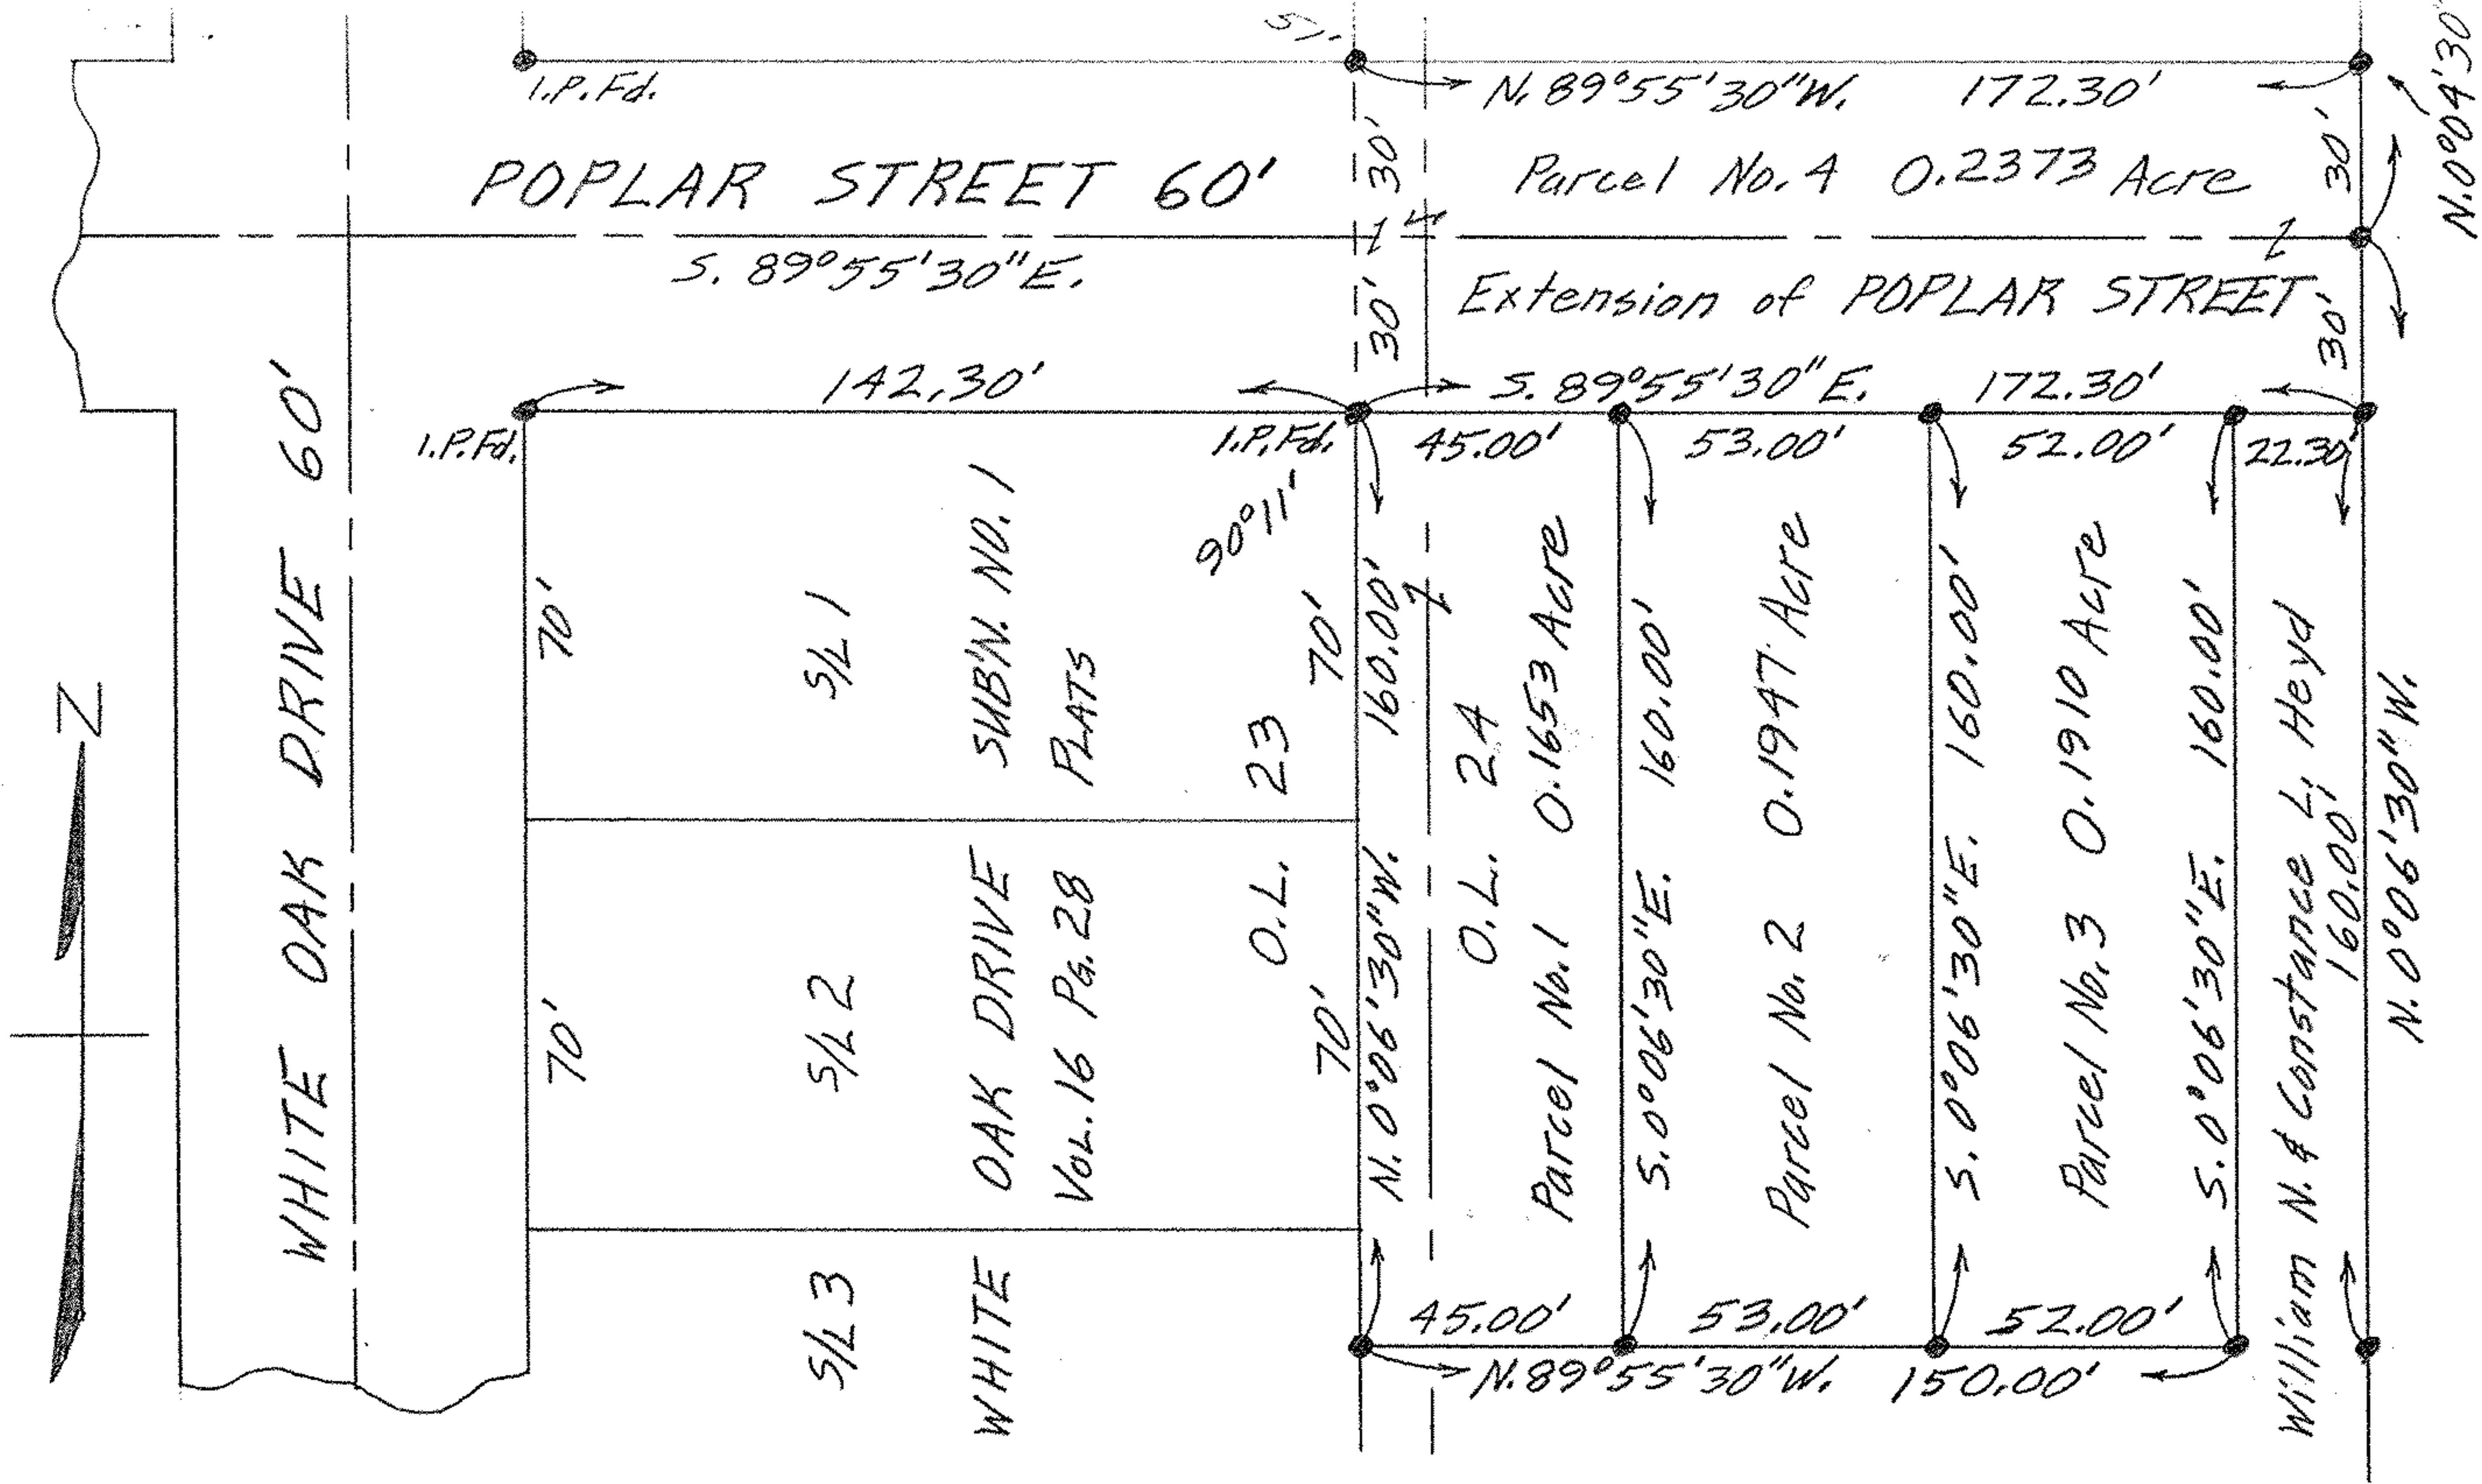 I.P.Fd.
N. 89°55'30"W. 172.30'
N.0°04'30"
POPLAR STREET 60'
30'
Parcel No. 4 0.2373 Acre
30'
S. 89°55'30"E.
30'
Extension of POPLAR STREET
30'
142.30'
S. 89°55'30"E. 172.30'
I.P.Fd.
I.P.Fd.
45.00'
53.00'
52.00'
22.30'
WHITE OAK DRIVE 60'
Z
70'
70'
S/L 1
S/L 2
S/L 3
WHITE OAK DRIVE SUB'N. NO. 1
VOL. 16 PG. 28 PLATS
90°11'
O.L. 23
70'
70'
N. 0°06'30"W. 160.00'
O.L. 24
Parcel No. 1 0.1653 Acre
S. 0°06'30"E. 160.00'
Parcel No. 2 0.1947 Acre
S. 0°06'30"E. 160.00'
Parcel No. 3 0.1910 Acre
S. 0°06'30"E. 160.00'
William N. & Constance L. Heyd
160.00'
N. 0°06'30"W.
45.00'
53.00'
52.00'
N. 89°55'30"W. 150.00'